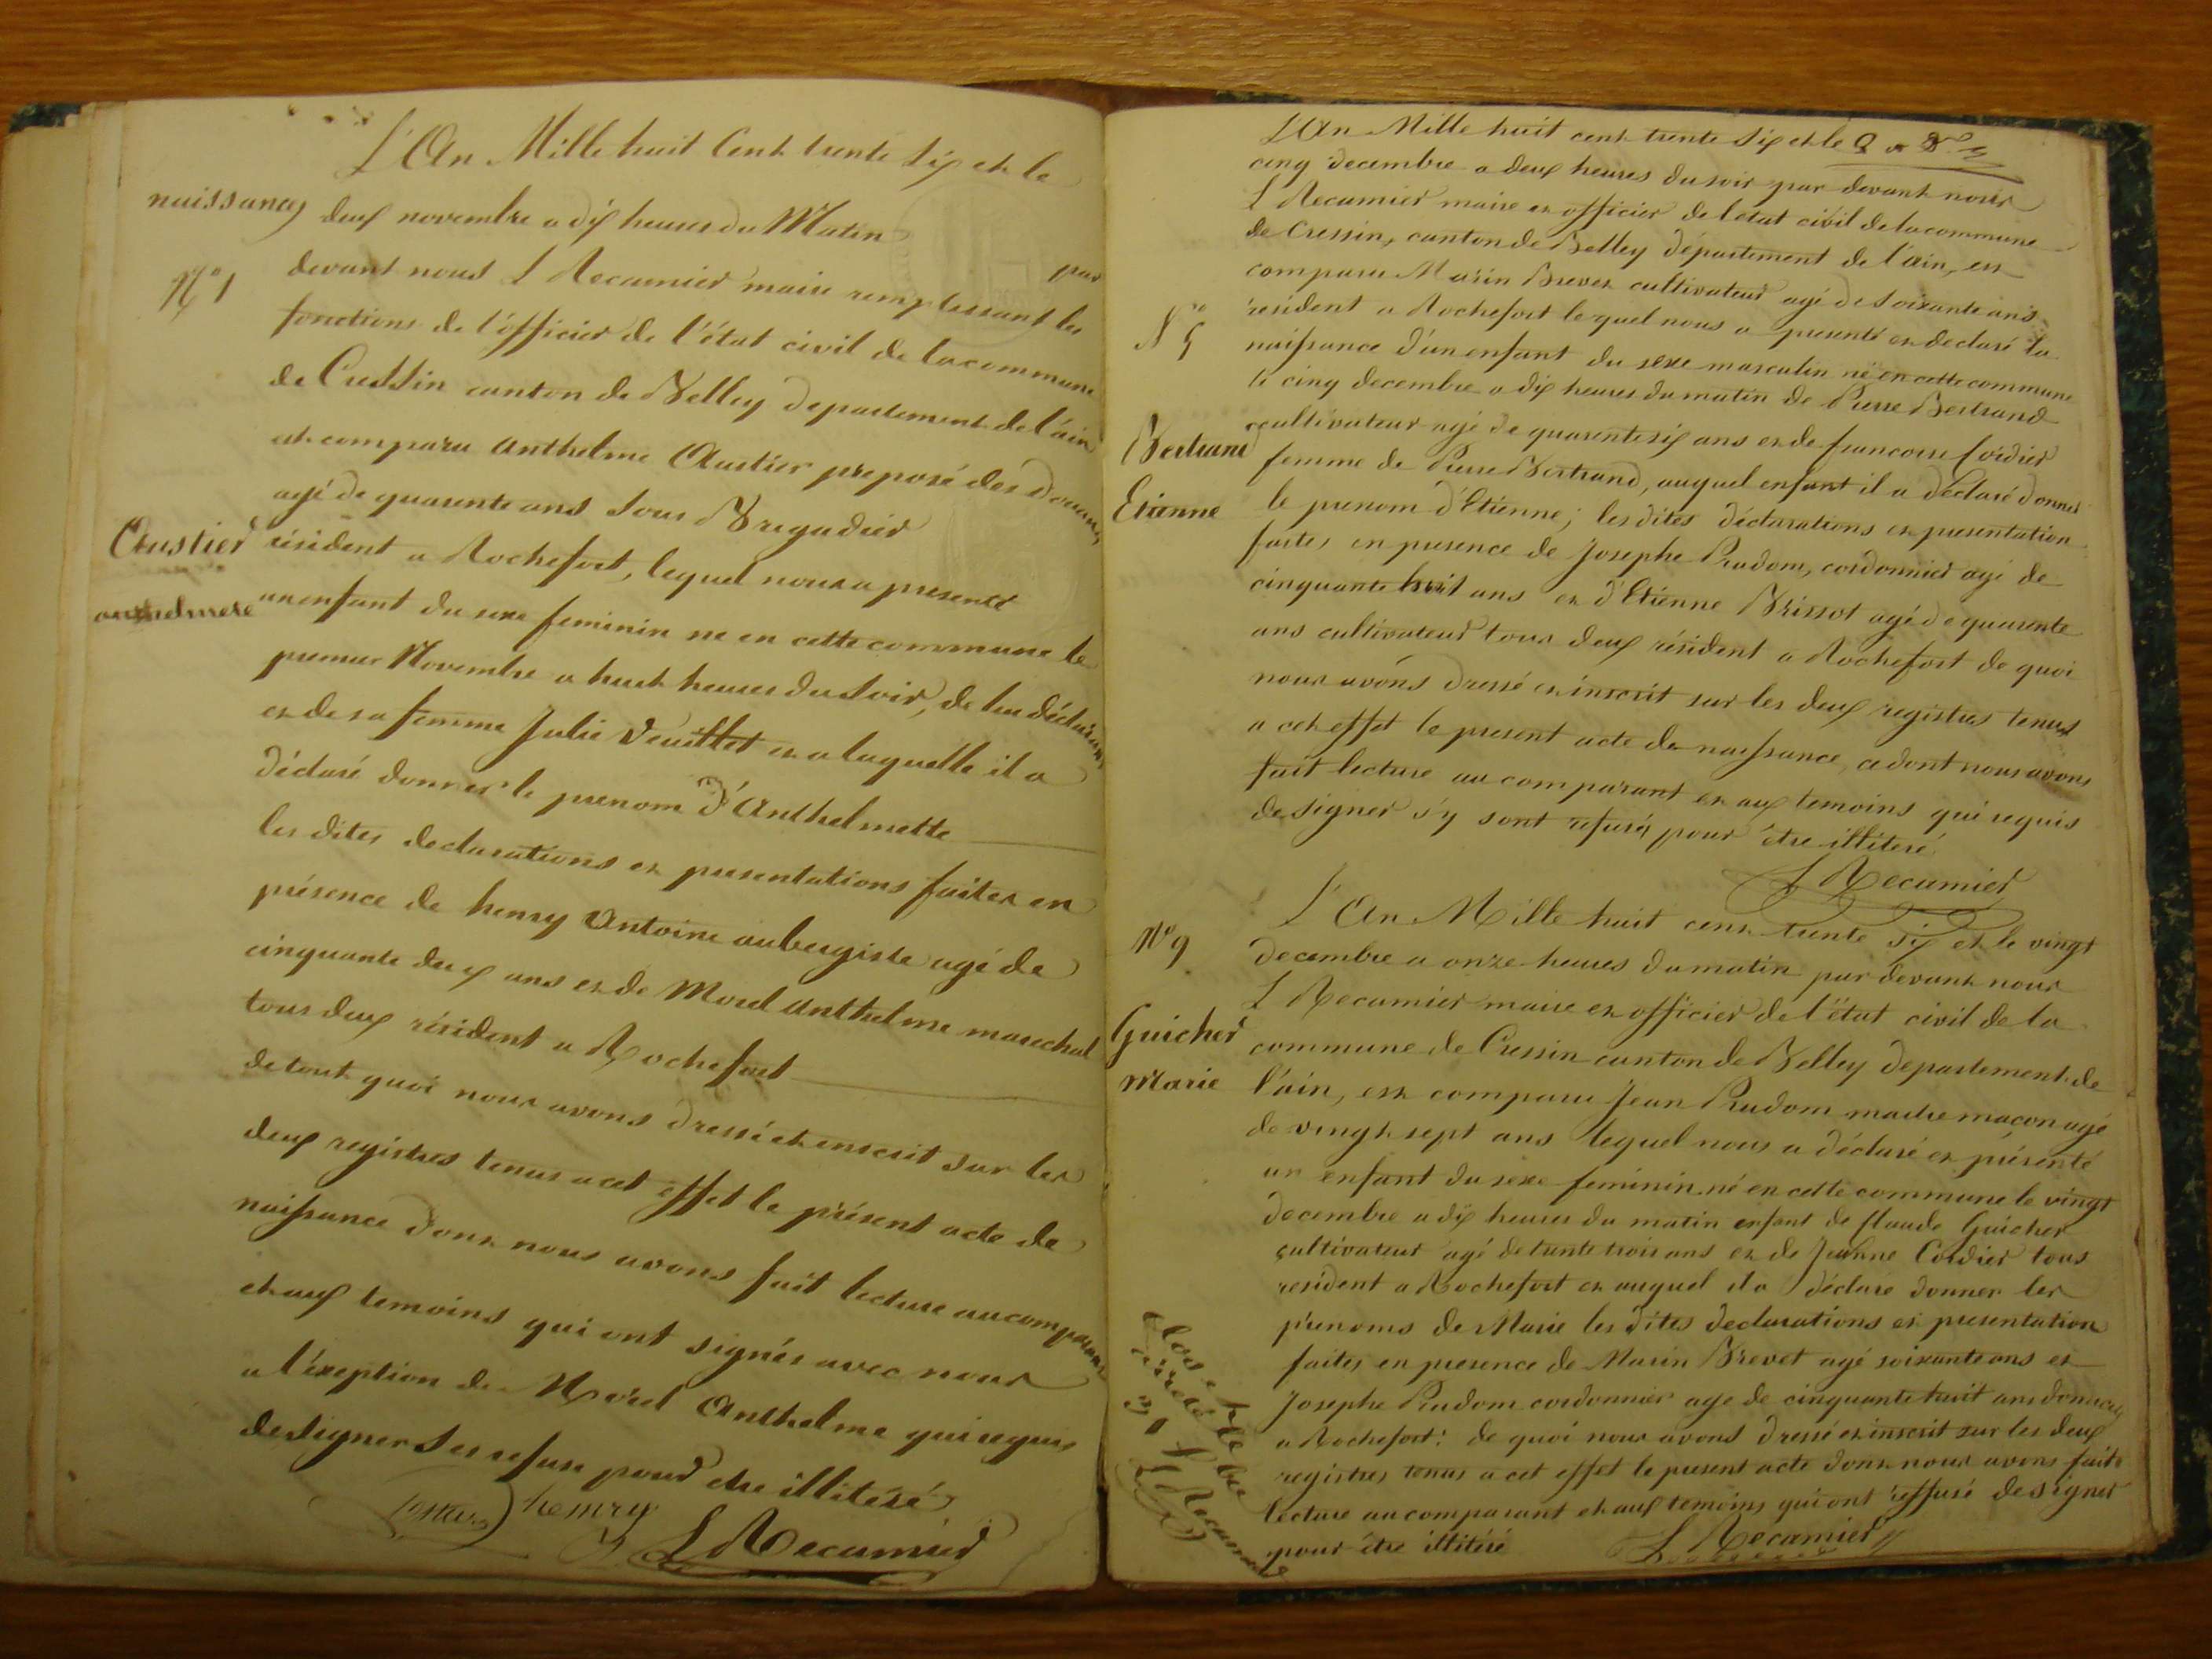 L'An Mille huit Cent trente six et le
naissances deux novembre a dix heures du Matin par
devant nous L Recamier maire remplissant les
fonctions de l'officier de l'état civil de la commune
de Cressin canton de Belley departement de l'ain
est comparu Anthelme Austier preposé des Douanes
agé de quarente ans Sous Brigadier
Austier résident a Rochefort, lequel nous a presenté
un enfant du sexe feminin né en cette commune le
premier Novembre a huit heures du Soir, de lui déclarant
et de sa femme Julie Veuillet et a laquelle il a
déclaré donner le prenom d'Anthelmette
les dites declarations et presentations faites en
présence de henry Antoine aubergiste agé de
cinquante deux ans et de Morel Anthelme marechal
tous deux résident a Rochefort
de tout quoi nous avons dressé et inscrit sur les
deux registres tenus a cet effet le présent acte de
naissance dont nous avons fait lecture au comparant
et aux temoins qui ont signés avec nous
a l'éxeption de Morel Anthelme qui requis
de signer s'es refusé pour etre illitéré
henry
L Recamier
L'An Mille huit cent trente six et le
cinq decembre a deux heures du soir par devant nous
L Recamier maire et officier de l'etat civil de la commune
de Cressin, canton de Belley département de l'ain, est
comparu Marin Brevet cultivateur agé de soixante ans
résident a Rochefort lequel nous a presenté et declaré la
naissance d'un enfant du sexe masculin né en cette commune
le cinq decembre a dix heures du matin de Pierre Bertrand
cultivateur agé de quarente six ans et de francoise Cordier
Bertrand femme de Pierre Bertrand, auquel enfant il a déclaré donner
Etienne le prenom d'Etienne; les dites déclarations et presentation
faites en presence de Josephe Prudom, cordonnier agé de
cinquante huit ans et d'Etienne Brissot agé de quarente
ans cultivateur tous deux résident a Rochefort de quoi
nous avons dressé et inscrit sur les deux registres tenus
a cet effet le present acte de naissance, ce dont nous avons
fait lecture au comparant et aux temoins qui requis
de signer s'y sont refusés pour être illitéré
L Recamier
L'An Mille huit cent trente six et le vingt
N° 9 decembre a onze heures du matin par devant nous
L Recamier maire et officier de l'état civil de la
Guicher commune de Cressin canton de Belley departement de
Marie l'ain, est comparu Jean Prudom maitre maçon agé
de vingt sept ans lequel nous a déclaré et présenté
un enfant du sexe feminin né en cette commune le vingt
decembre a dix heures du matin enfant de Claude Guicher
cultivateur agé de trente trois ans et de Jeanne Cordier tous
resident a Rochefort et auquel il a déclare donner les
prenoms de Marie les dites declarations et presentation
faites en presence de Marin Brevet agé soixante ans et
Josephe Prudom cordonnier age de cinquante huit ans
a Rochefort: de quoi nous avons dressé et inscrit sur les deux
registres tenus a cet effet le present acte dont nous avons fait
lecture au comparant et aux temoins qui ont reffusé de signer
pour être illitéré
L Recamier